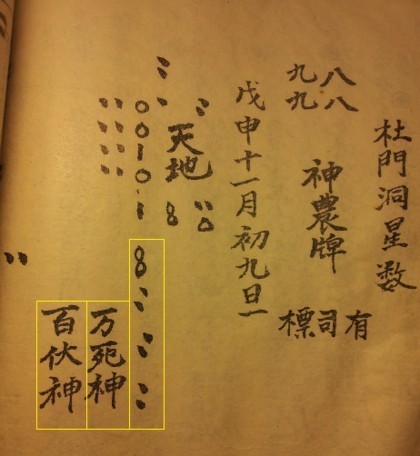 杜門洞星数
八八
九九
神農牌
有司標
戊申十一月初九日
天地
万死神
百伏神